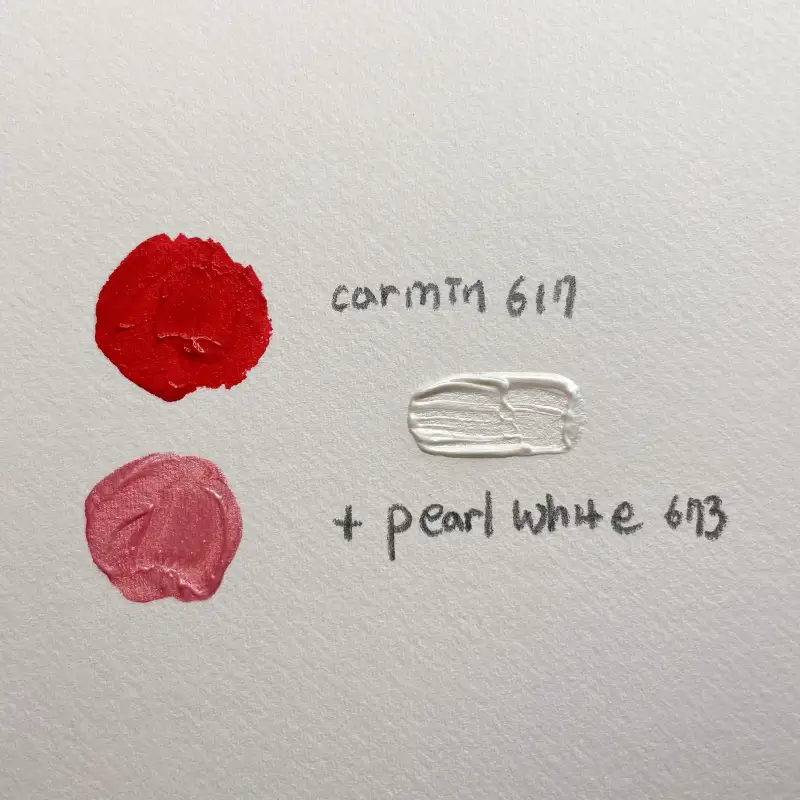 carmin 617
+ pearl white 673